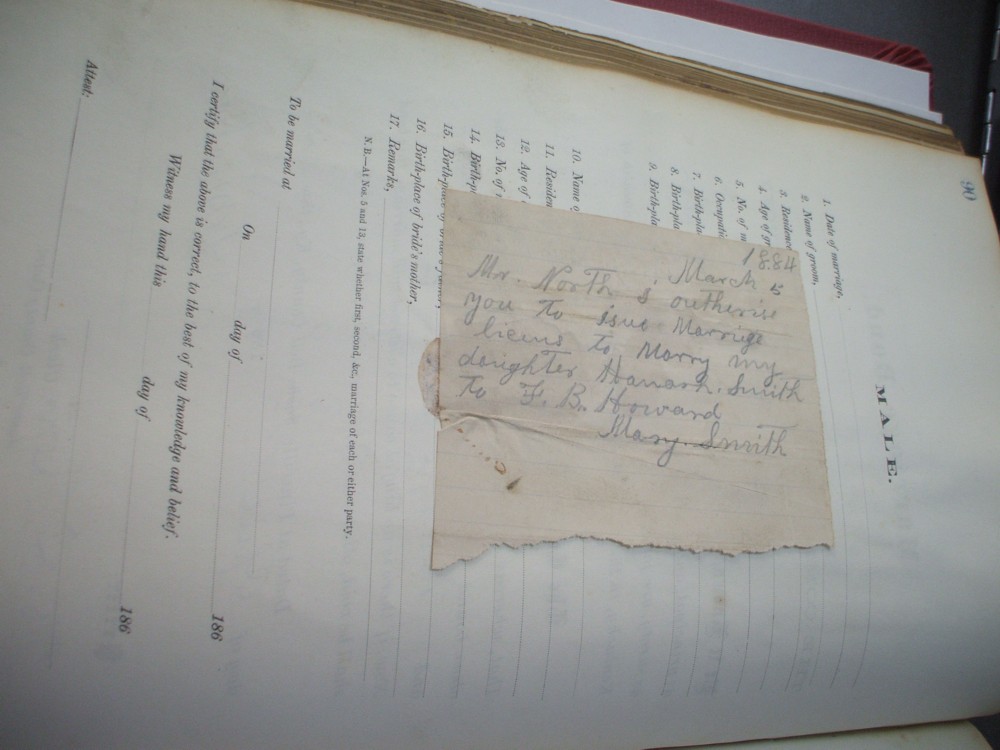 90
MALE.
1. Date of marriage,
2. Name of groom,
3. Residence
4. Age of gr
5. No. of m
6. Occupati
7. Birth-pla
8. Birth-pla
9. Birth-pla
10. Name o
11. Residen
12. Age of
13. No. of
14. Birth-p
15. Birth-place of bride's father,
16. Birth-place of bride's mother,
17. Remarks,
N. B.—At Nos. 5 and 13, state whether first, second, &c., marriage of each or either party.
To be married at
On day of 186
I certify that the above is correct, to the best of my knowledge and belief.
Witness my hand this day of 186
Attest:
1884
March 5
Mr. North s outherise
you to isue Marrige
licens to Marry my
daughter Hanarh. Smith
To F. B. Howard
Mary. Smith